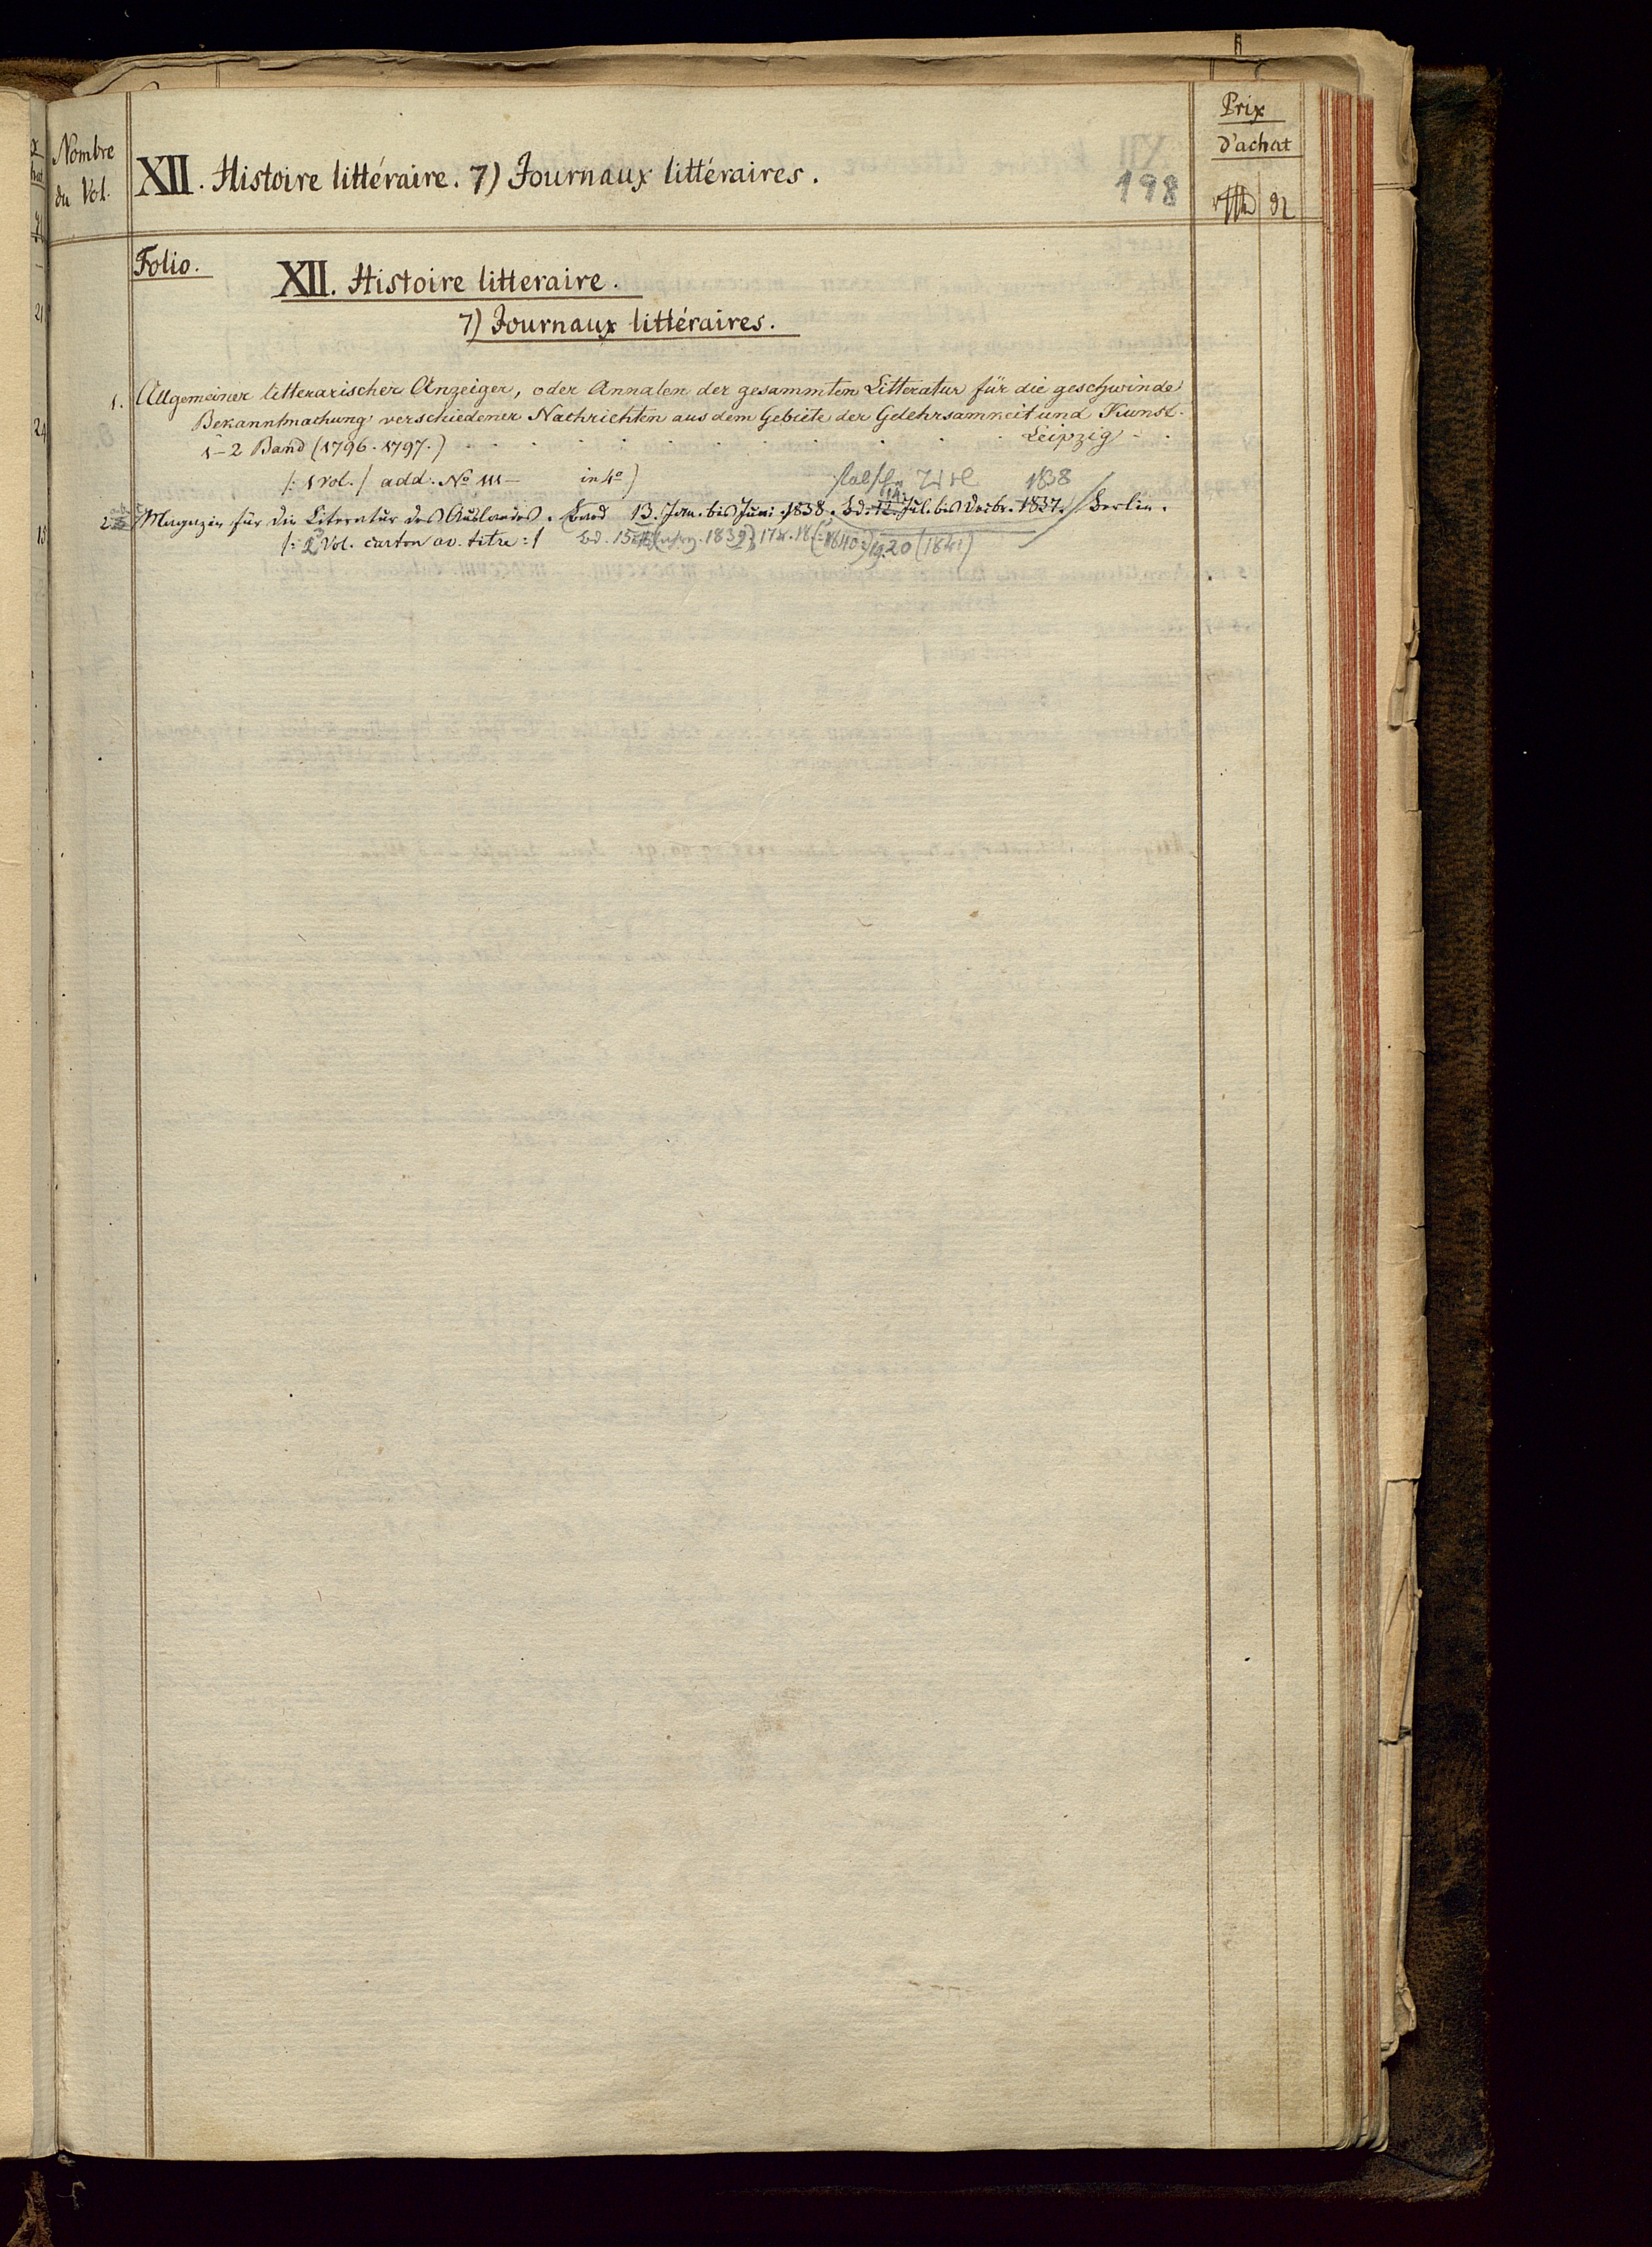 Nombre
du Vol.
XII. Histoire littéraire. 7) Journaux littéraires.
198
Prix
d'achat
Folio.
XII. Histoire litteraire.
7) Journaux littéraires.
1. Allgemeiner litterarischer Anzeiger, oder Annalen der gesammten Litteratur für die geschwinde
Bekanntmachung verschiedener Nachrichten aus dem Gebiete der Gelehrsamkeit und Kunst.
1-2 Band (1796. 1797.) Leipzig
/: 1 vol. / add: No in 4o)
1838
14.
2 Magazin für die Literatur des Auslandes. Band 13. Jan. bis Juni 1838. Bd. 12. Jul. bis Decbr. 1837. Berlin.
/: 2 Vol. carton av. titre :/ Bd. 15 1839 17 18 (1840) 19. 20 (1841)